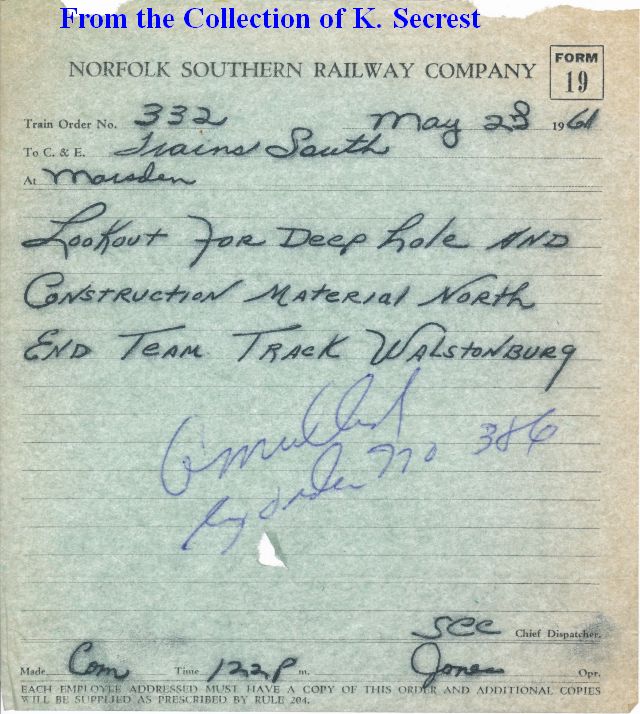 From the Collection of K. Secrest
NORFOLK SOUTHERN RAILWAY COMPANY
FORM 19
Train Order No. 332 May 23 1961
To C. & E. Trains South
At Marsden
Lookout For Deep hole AND
Construction Material North
End Team Track Walstonburg
by order No 386
SCC Chief Dispatcher.
Made Com Time 122P m. Jones Opr.
EACH EMPLOYEE ADDRESSED MUST HAVE A COPY OF THIS ORDER AND ADDITIONAL COPIES
WILL BE SUPPLIED AS PRESCRIBED BY RULE 204.